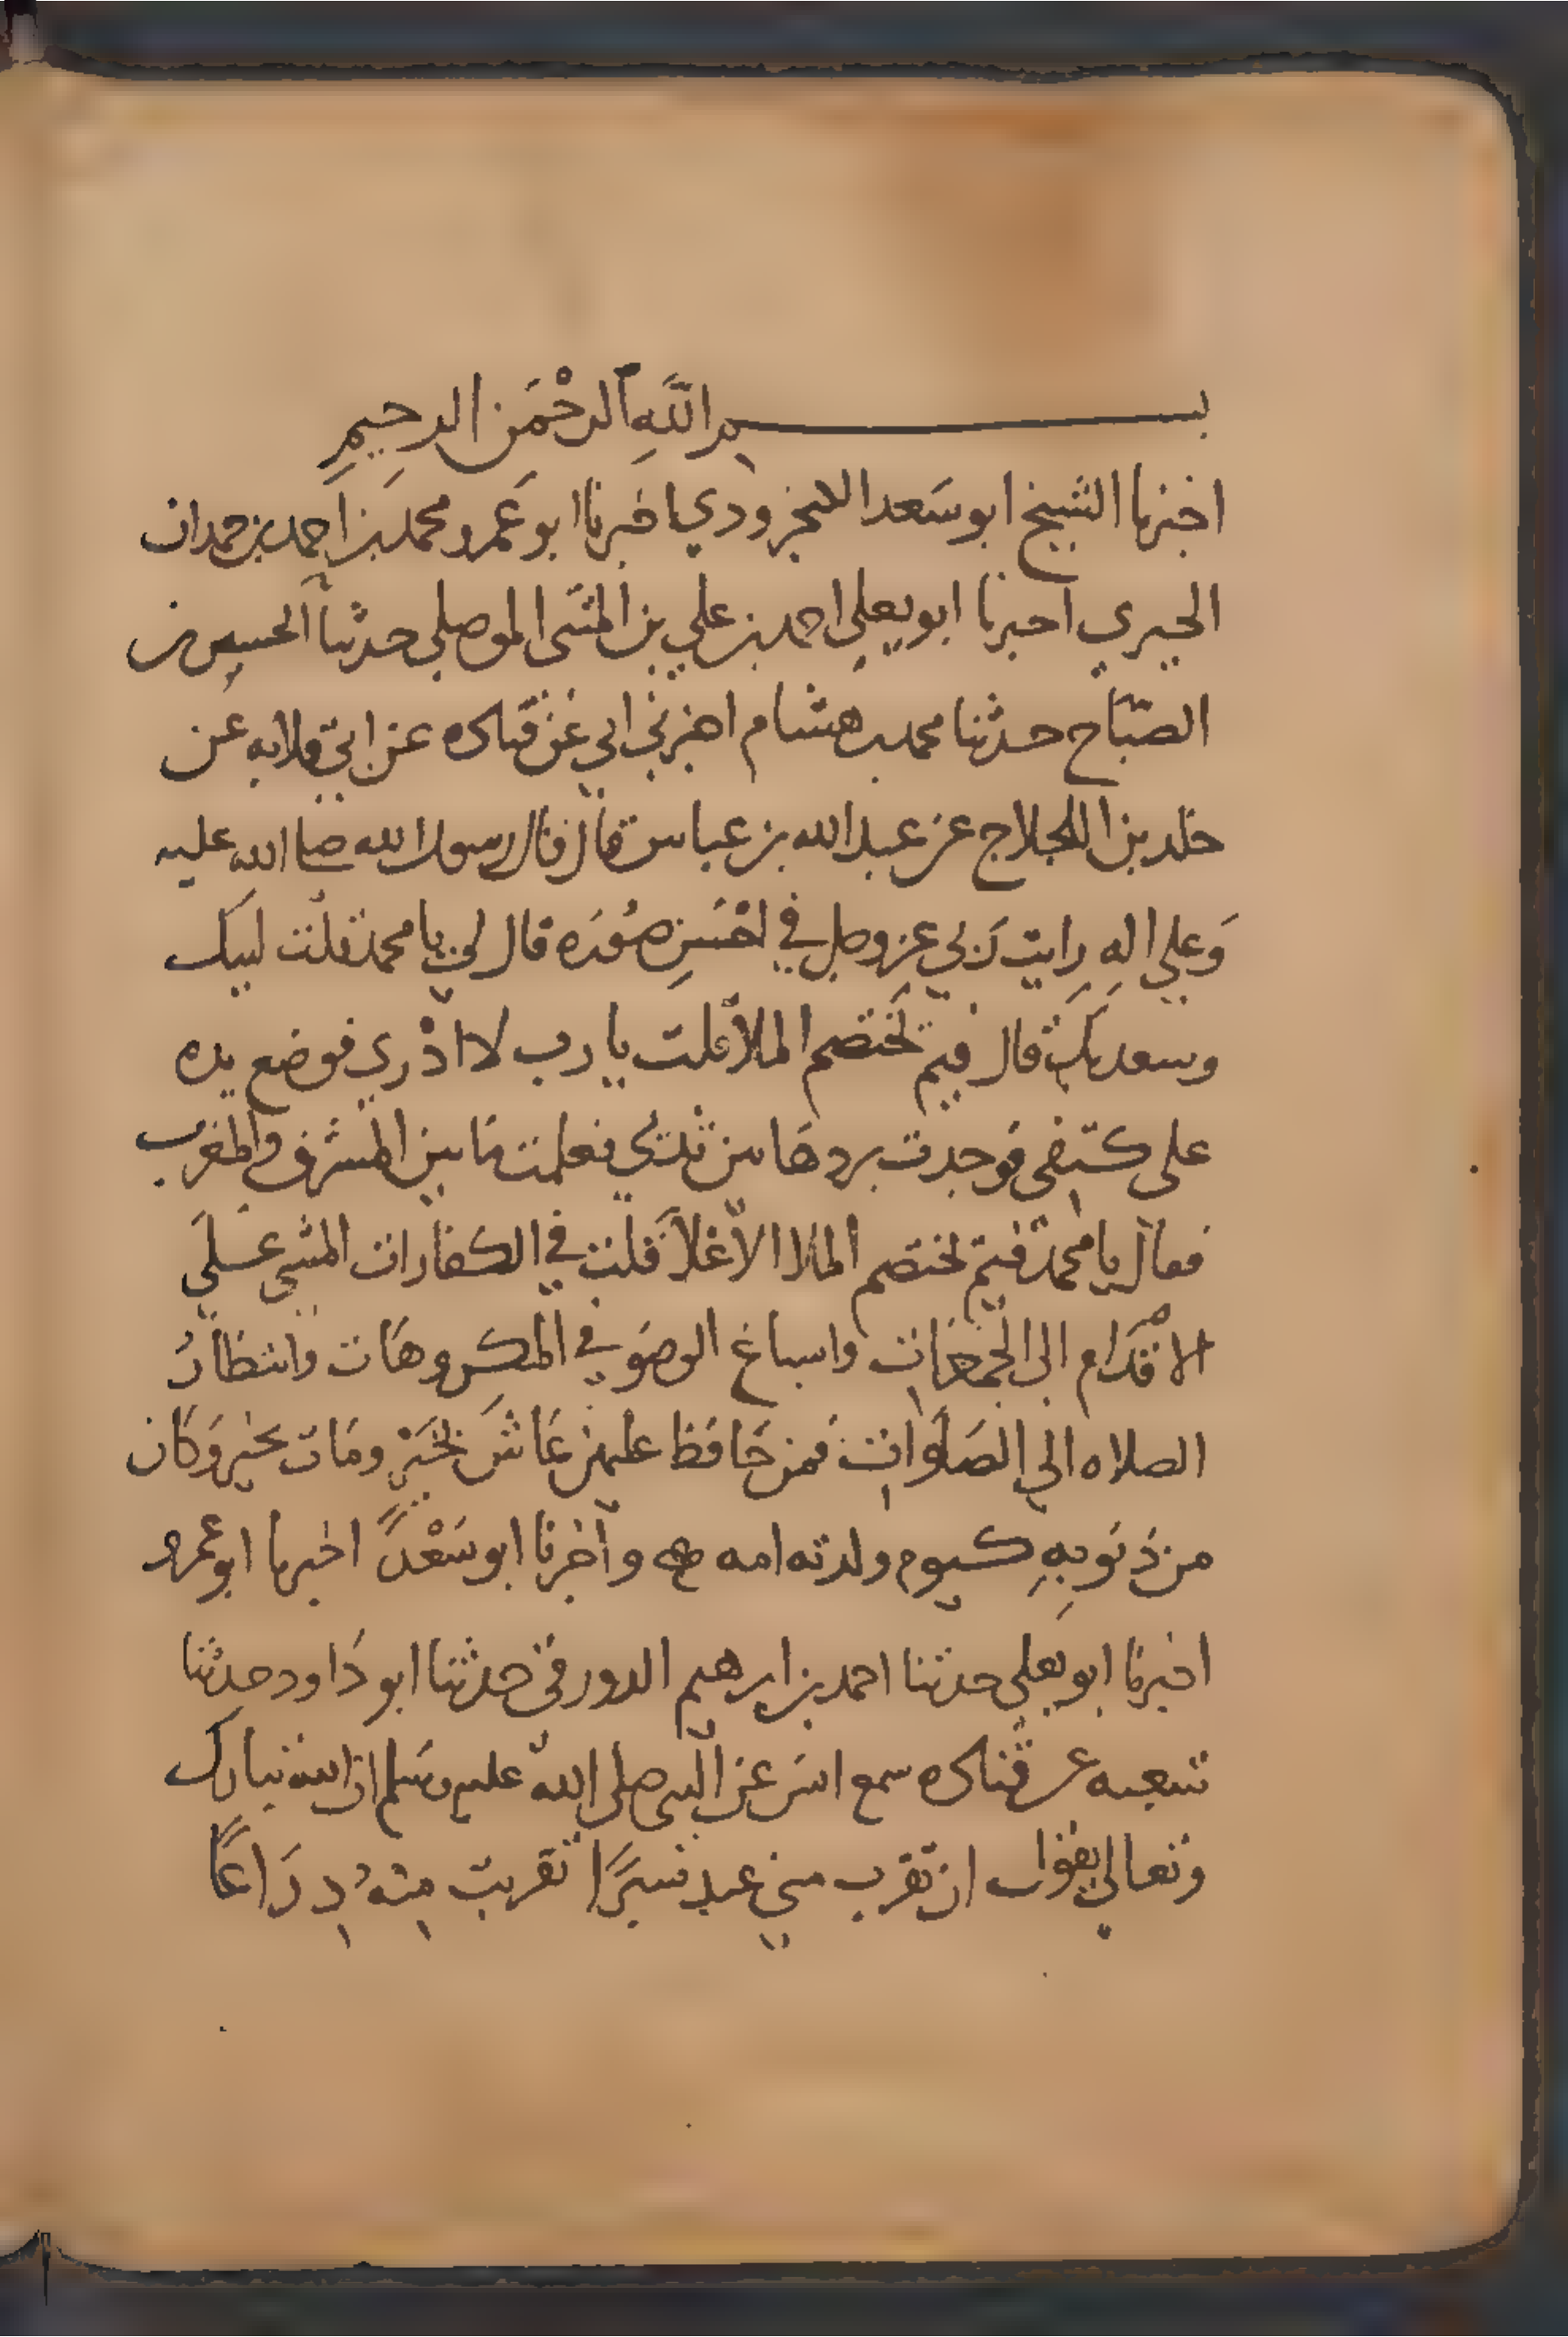 بسم الله الرحمن الرحيم
اخبرنا الشيخ ابو سعد الكنجرودي اخبرنا ابو عمرو محمد بن احمد بن حمدان
الحيري اخبرنا ابو يعلي احمد بن علي بن المثنى الموصلي حدثنا الحسين بن
الصباح حدثنا محمد بن هشام اخبرني ابي عن قتاده عن ابي قلابه عن
خلد بن اللجلاج عن عبد الله بن عباس قال قال رسول الله صلى الله عليه
وَعلي اله رايت رَبي عز وجل في احْسَنِ صُورَه قال لي يا محمد قلت لبيك
وسعديك قال فيم تَختصم الملأ قلت يا رب لا ادْري فوضع يده
على كتفي فوجدت بردها بين ثديي فعلمت مَا بين المشرق والمغرب
فقال يا محمد فيم تختصم الملا الاعْلا قلت في الكفارات المشي عَلَي
الاقدَام الى الجمعَات واسباغ الوضو في المكروهَات وانتظارُ
الصلاه الي الصَلَوات فمن حَافظ عليهن عَاشَ بخيْرٍ ومَات بخير وَكان
من ذنوبهِ كيوم ولدته امه وأخبرنا ابو سَعْد اخبرنا ابو عمرو
اخبرنا ابو يعلي حدثنا احمد بن ابرهيم الدورقي حدثنا ابو دَاود حدثنا
شعبه عن قتاده سمع انس عن النبي صلى الله عليه وسَلم ان الله تبارك
وتعالي يقول ان تقرب مني عبدي شبرًا تقربت منهُ ذِرَاعًا